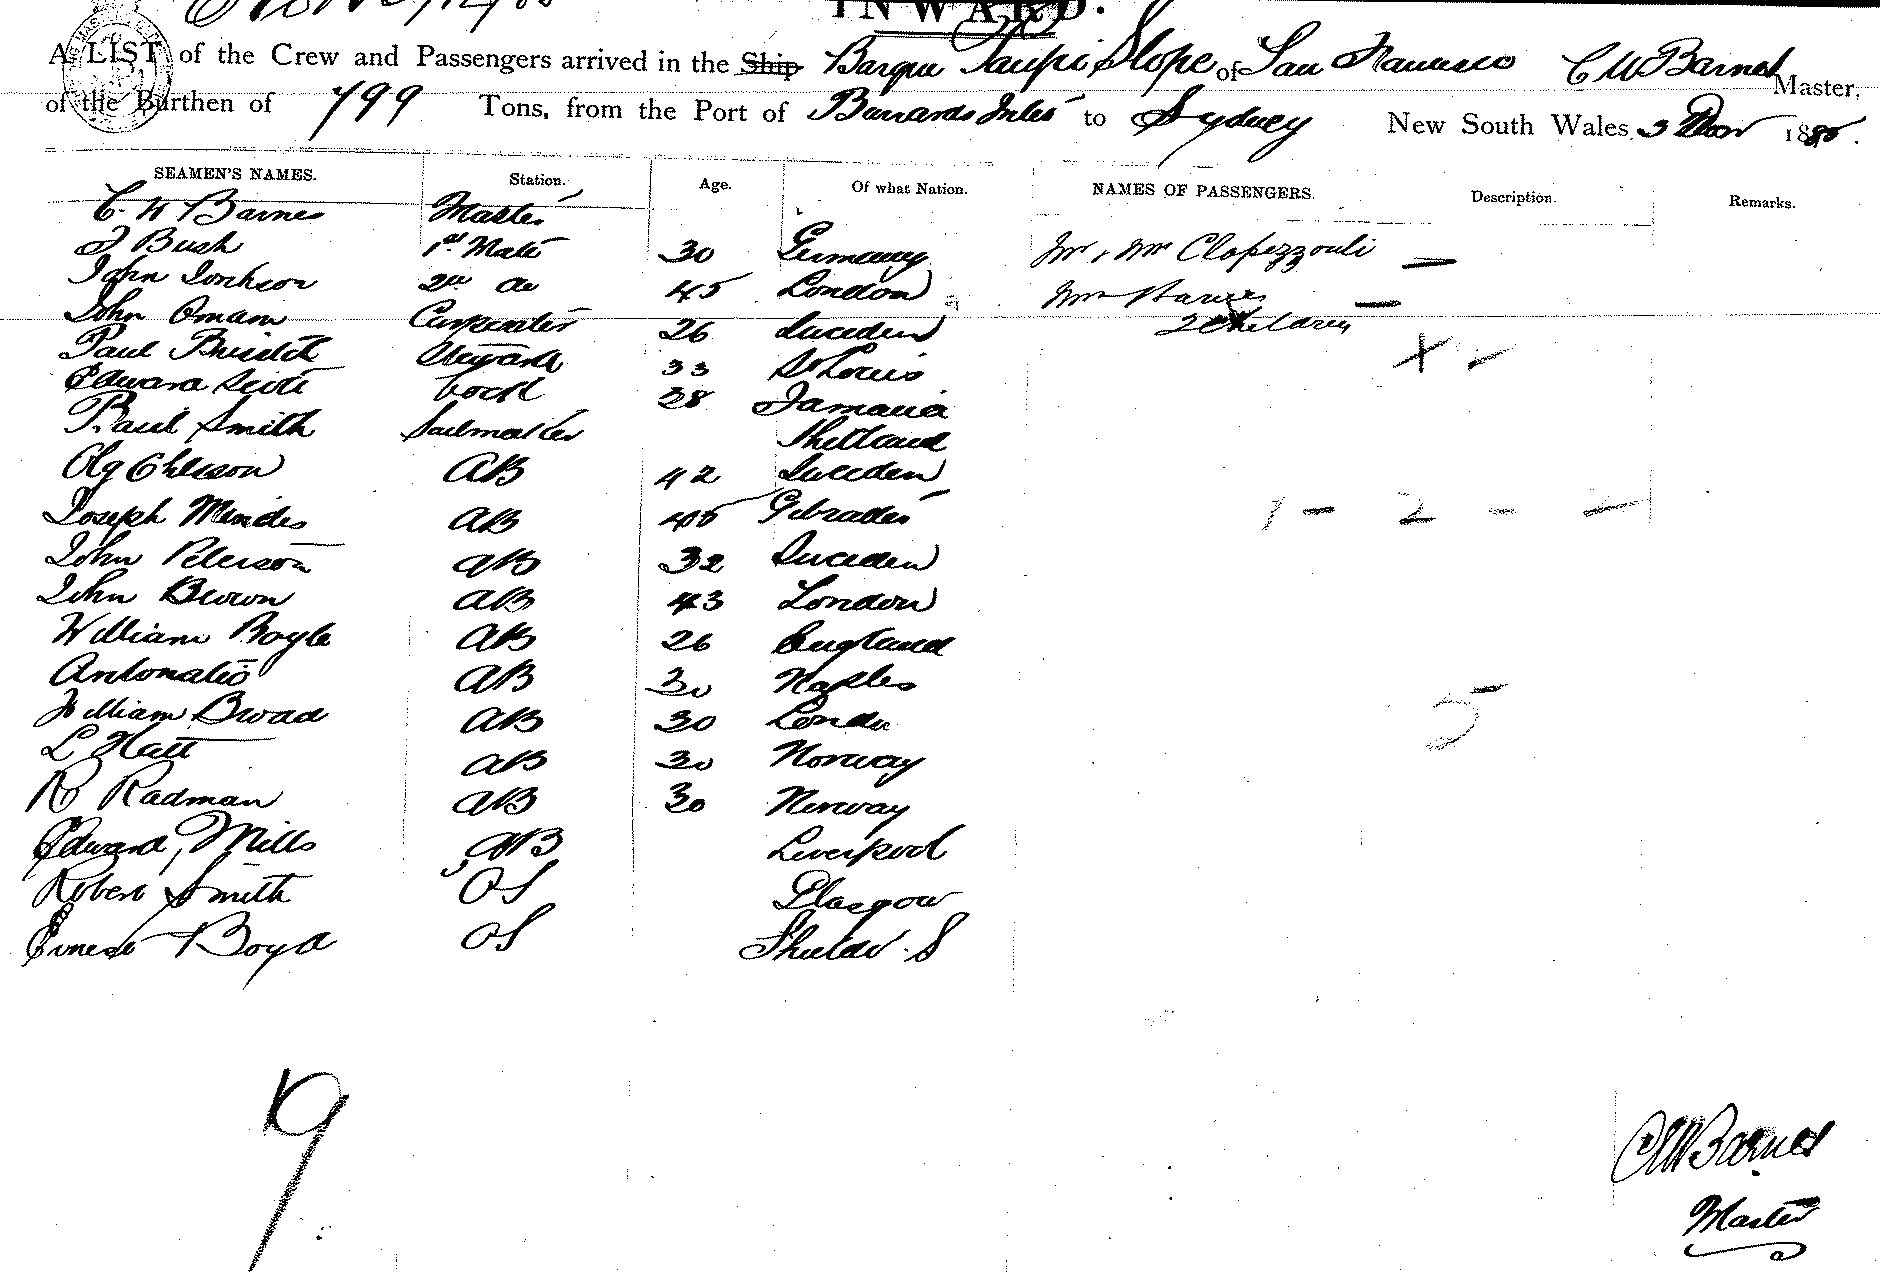 INWARD.
A LIST of the Crew and Passengers arrived in the Ship Barque Slope of San Francisco C W Barnes Master,
of the Burthen of 799 Tons, from the Port of Burrards Inlet to Sydney New South Wales 188
SEAMEN'S NAMES. Station. Age. Of what Nation. NAMES OF PASSENGERS. Description. Remarks.
C. W Barnes Master
J Bush 1st Mate 30 Germany Mr Clopezzouli
John 2nd do 45 London Mrs
John Omam Carpenter 26 Sweden 2 Children
Paul Steward 33 St Louis
Edward Scott Cook 38 Jamaica
Paul Smith Sailmaker Shetland
Olg Ohlsson AB 42 Sweden
Joseph Mendes AB 40 1 - 2 - -
John Peterson AB 32 Sweden
John Brown AB 43 London
William Boyle AB 26 England
Antonatio AB 30 Naples
William Broad AB 30 London 5
L Hatt AB 30 Norway
R Radman AB 30 Norway
Edward Mills AB Liverpool
Robert Smith OS Glasgow
Ernest Boyd OS Shields S
19
C W Barnes
Master